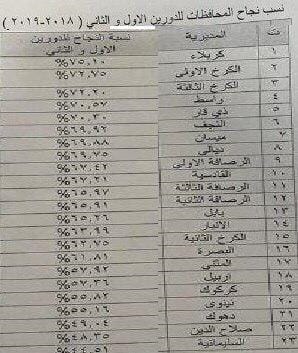 نسب نجاح المحافظات للدورين الاول و الثاني ( ٢٠١٨-٢٠١٩ )
ت المديرية نسبة النجاح للدورين
الاول و الثاني
١ كربلاء %٧٥,٢٠
٢ الكرخ الاولى %٧٢,٧٥
٣ الكرخ الثالثة %٧٢,٢٠
٤ واسط %٧٠,٥٧
٥ ذي قار %٧٠,٢٠
٦ النجف %٦٩,٩٢
٧ ميسان %٦٩,٨٨
٨ ديالى %٦٩,٧٥
٩ الرصافة الاولى %٦٧,٤٢
١٠ القادسية %٦٧,٢١
١١ الرصافة الثالثة %٦٥,٩٧
١٢ الرصافة الثانية %٦٥,٩١
١٣ بابل %٦٥,٢٦
١٤ الانبار %٦٣,٩٩
١٥ الكرخ الثانية %٦٣,٧٥
١٦ البصرة %٦١,٨١
١٧ المثنى %٥٧,٩٢
١٨ اربيل
١٩ كركوك %٥٥,٨٢
٢٠ نينوى
٢١ دهوك %٤٩,٠٤
٢٢ صلاح الدين %٤٨,٣٥
٢٣ السليمانية %٤٤,٥١